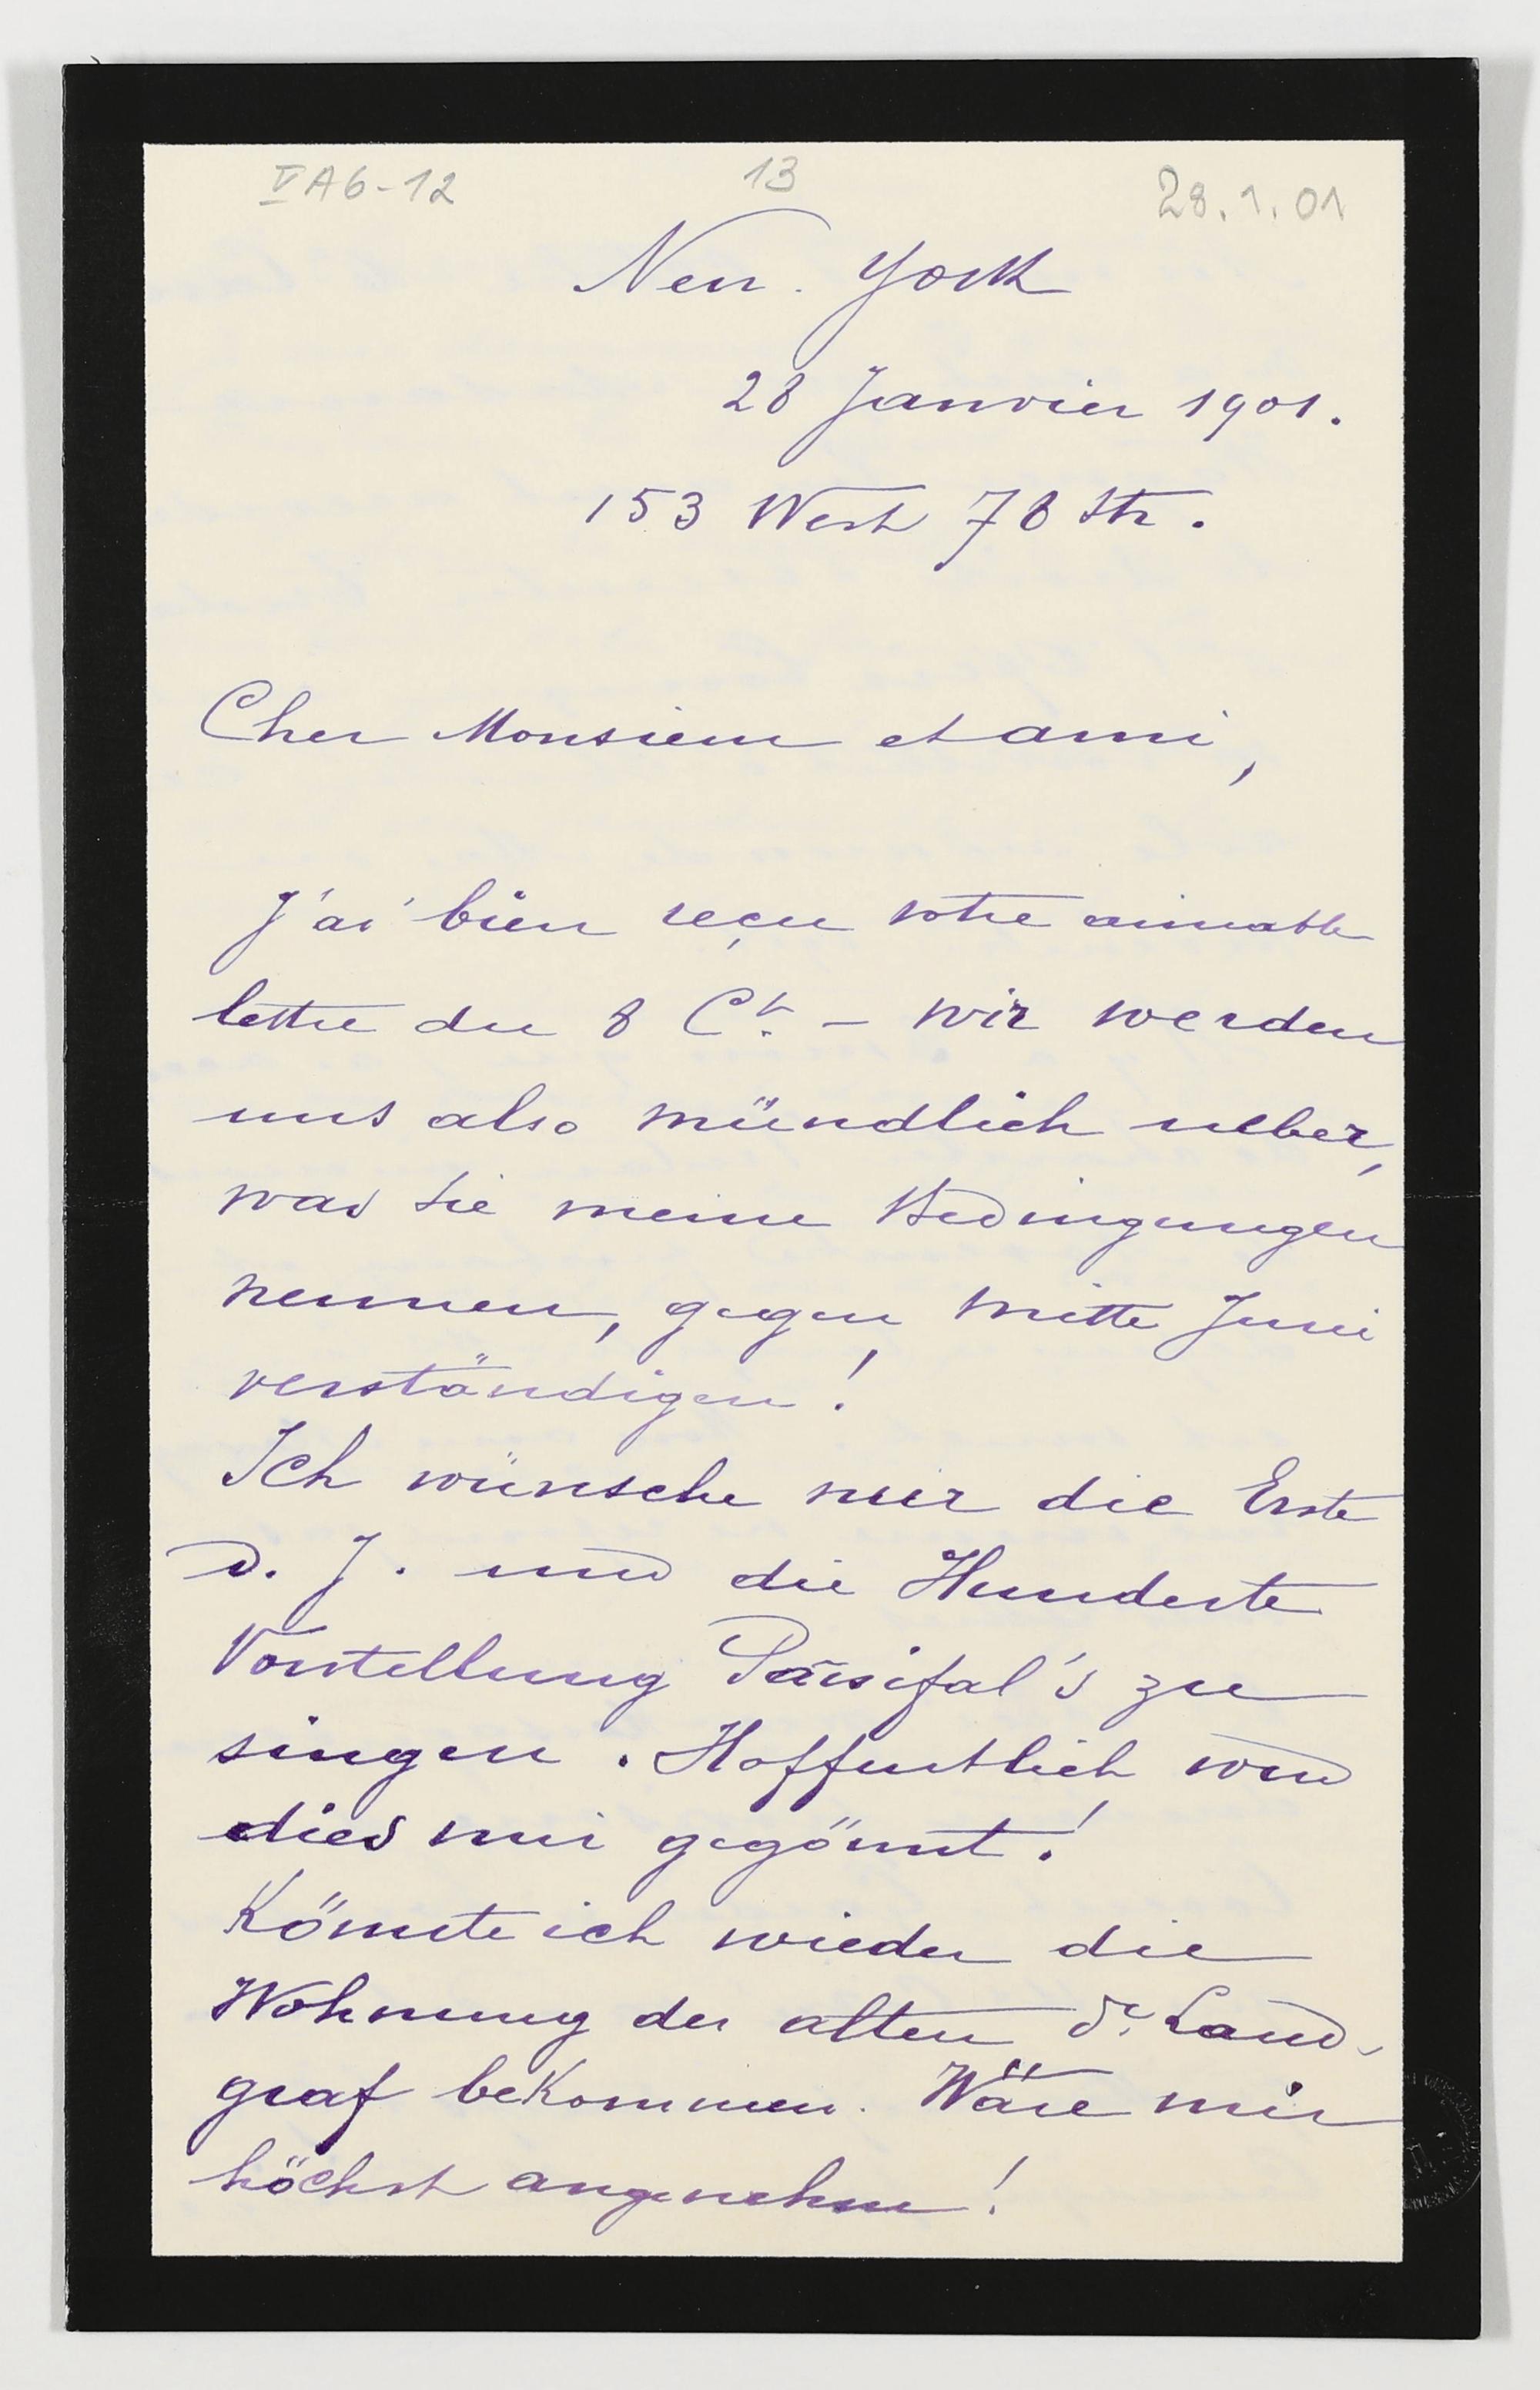 V A 6-12 13 28.1.01
New. York
28 Janvier 1901.
153 West 78 Str.
Cher Monsieur et ami,
J'ai bien reçu votre aimable
lettre du 8 Ct. – wir werden
uns also mündlich ueber,
was Sie meine Bedingungen
nennen, gegen mitte Juni
verständigen!
Ich wünsche mir die Erste
d. J. und die Hunderte
Vorstellung Parsifal's zu
singen. Hoffentlich wird
dies mir gegönnt!
Könnte ich wieder die
Wohnung der alten Land-
graf bekommen. Wäre mir
höchst angenehm!